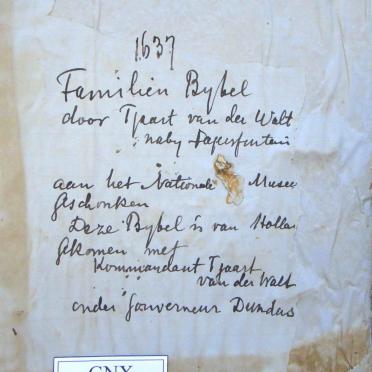 1637
Familien Bybel
door Tjaart van der Walt
naby
aan het Nationale Musee
geschonken
Deze Bybel is van Hollan
gekomen met
Kommandant Tjaart
van der Walt
onder Gouverneur Dundas
CNX